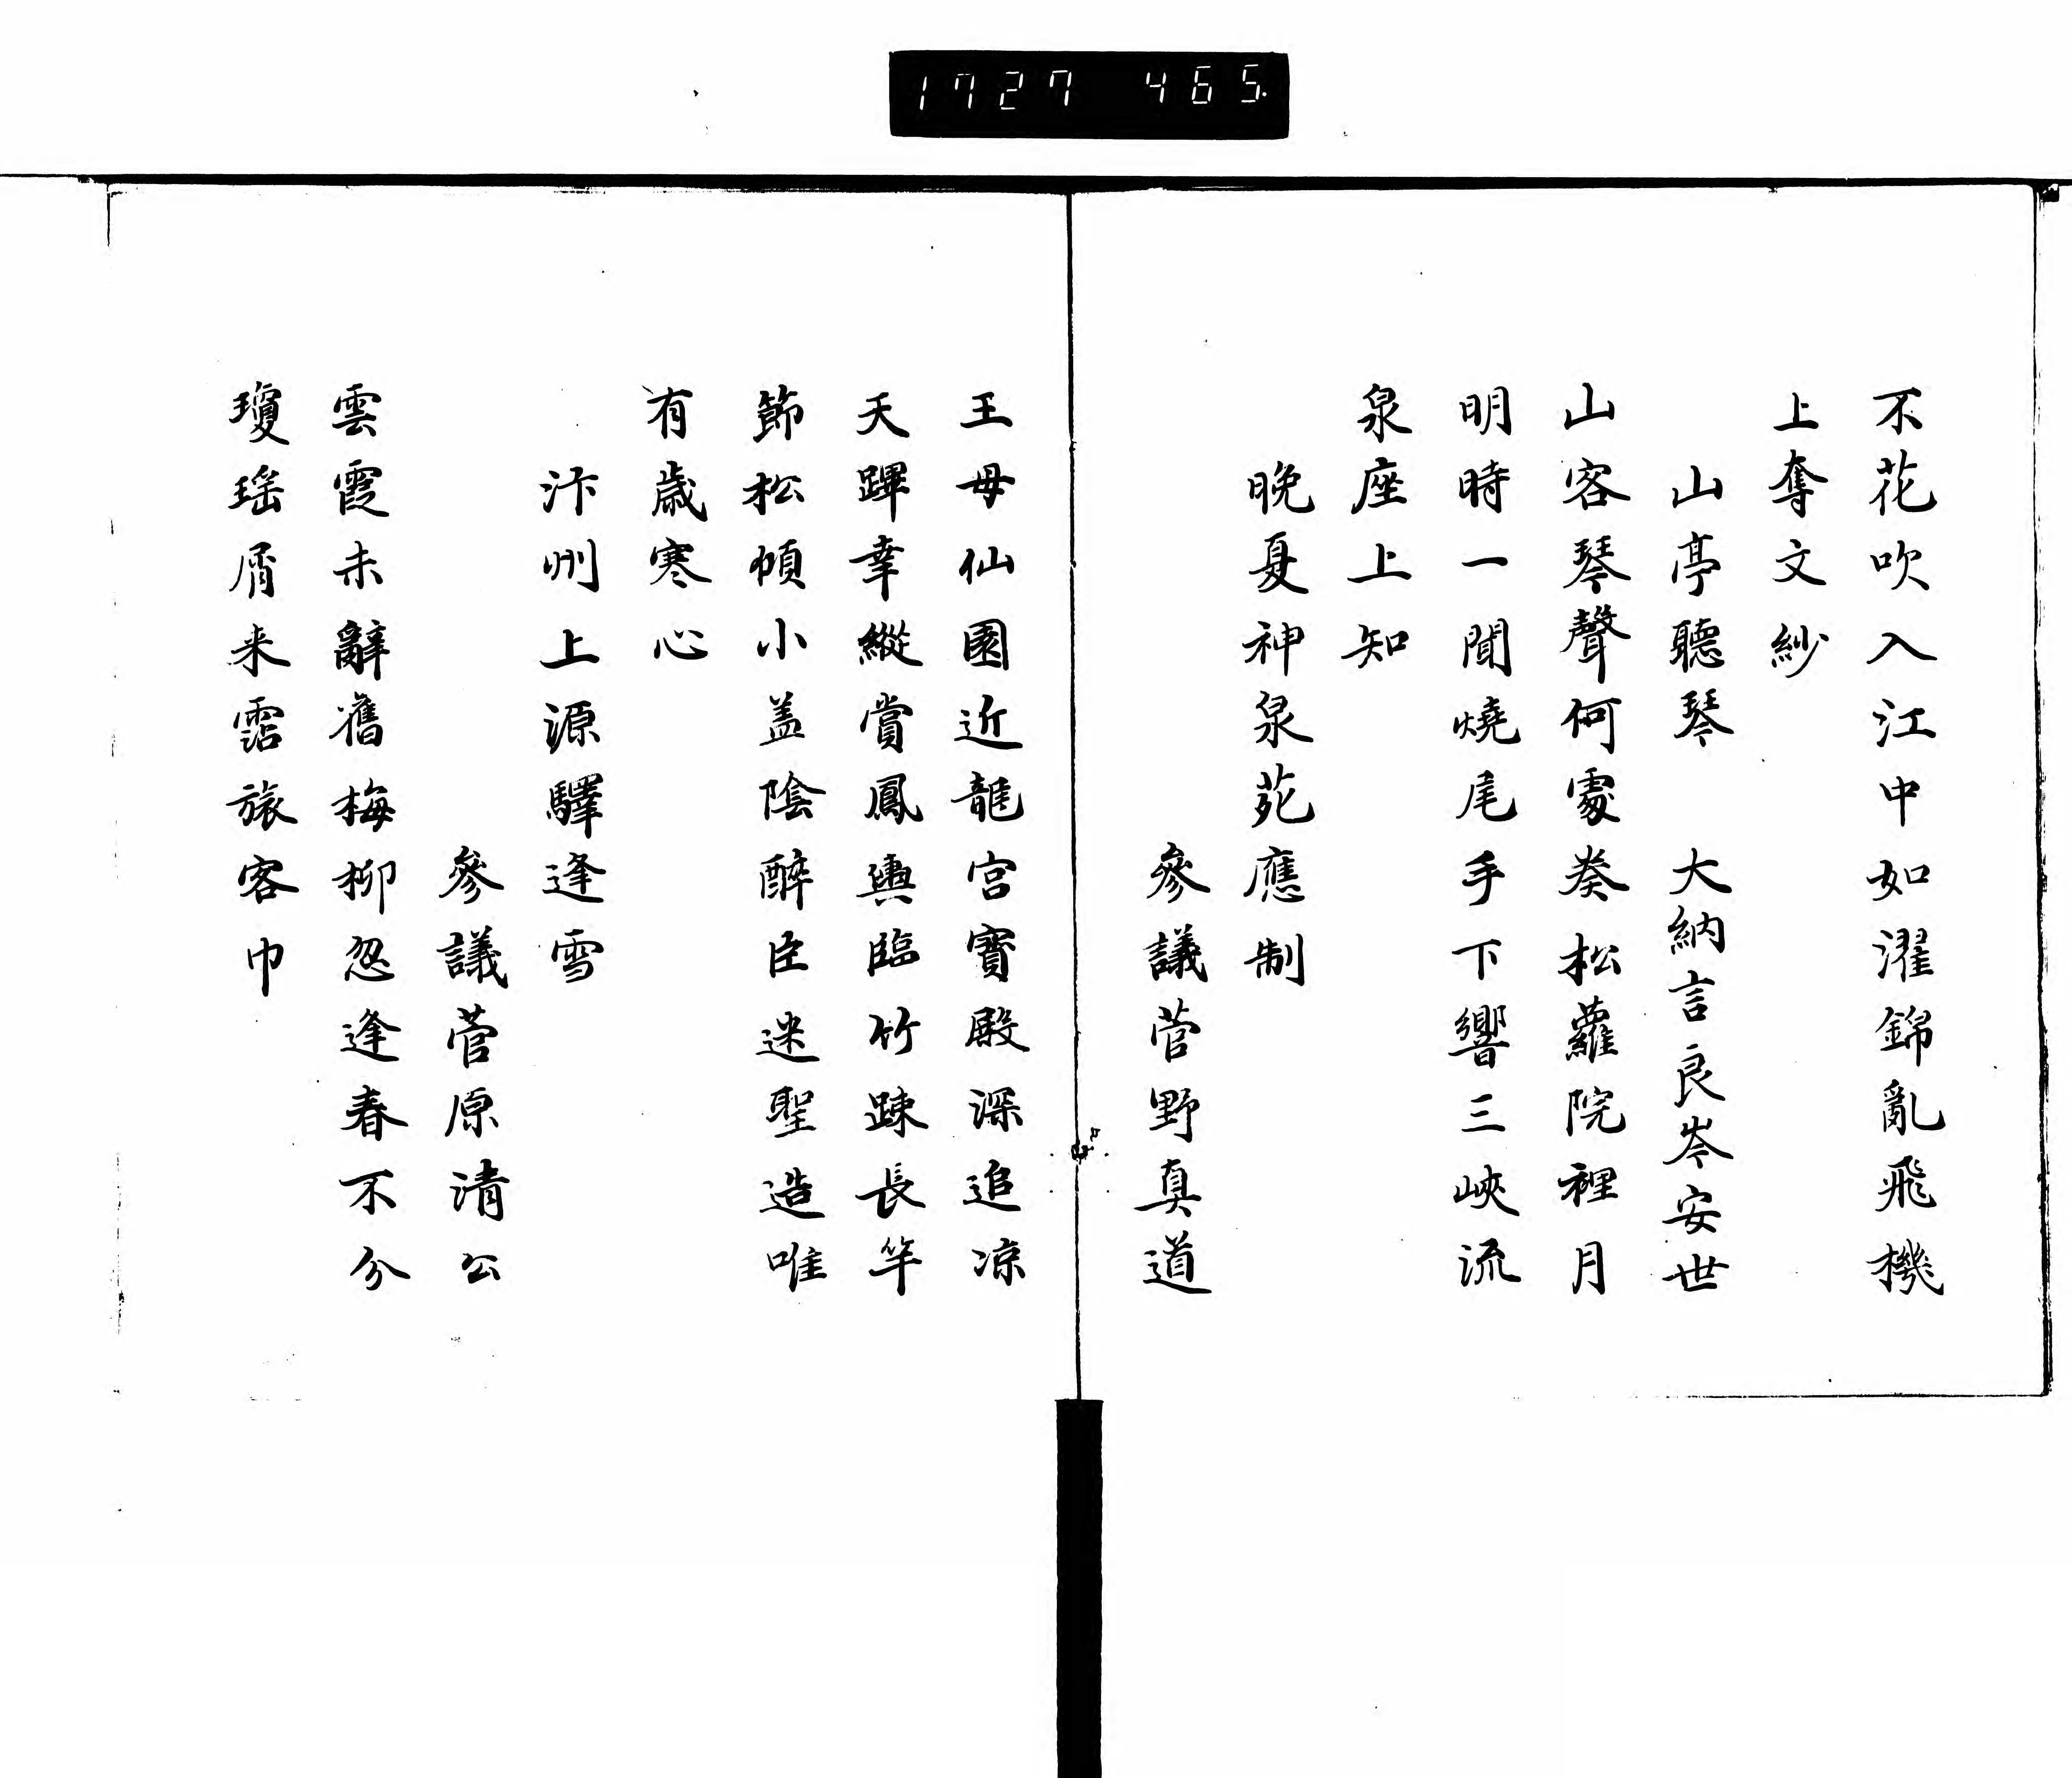 1727 465.
不花吹入江中如濯錦亂飛機
上奪文紗
山亭聽琴 大納言良岑安世
山客琴聲何處奏松蘿院裡月
明時一聞燒尾手下響三峽流
泉座上知
晚夏神泉苑應制
參議菅野真道
王母仙園近龍宮寶殿深追凉
天蹕幸縱賞鳳輿臨竹踈長竿
節松幀小盖陰醉臣迷聖造唯
有歲寒心
汴州上源驛逢雪
參議菅原清公
雲霞未辭舊梅柳忽逢春不分
瓊瑶屑来霑旅客巾